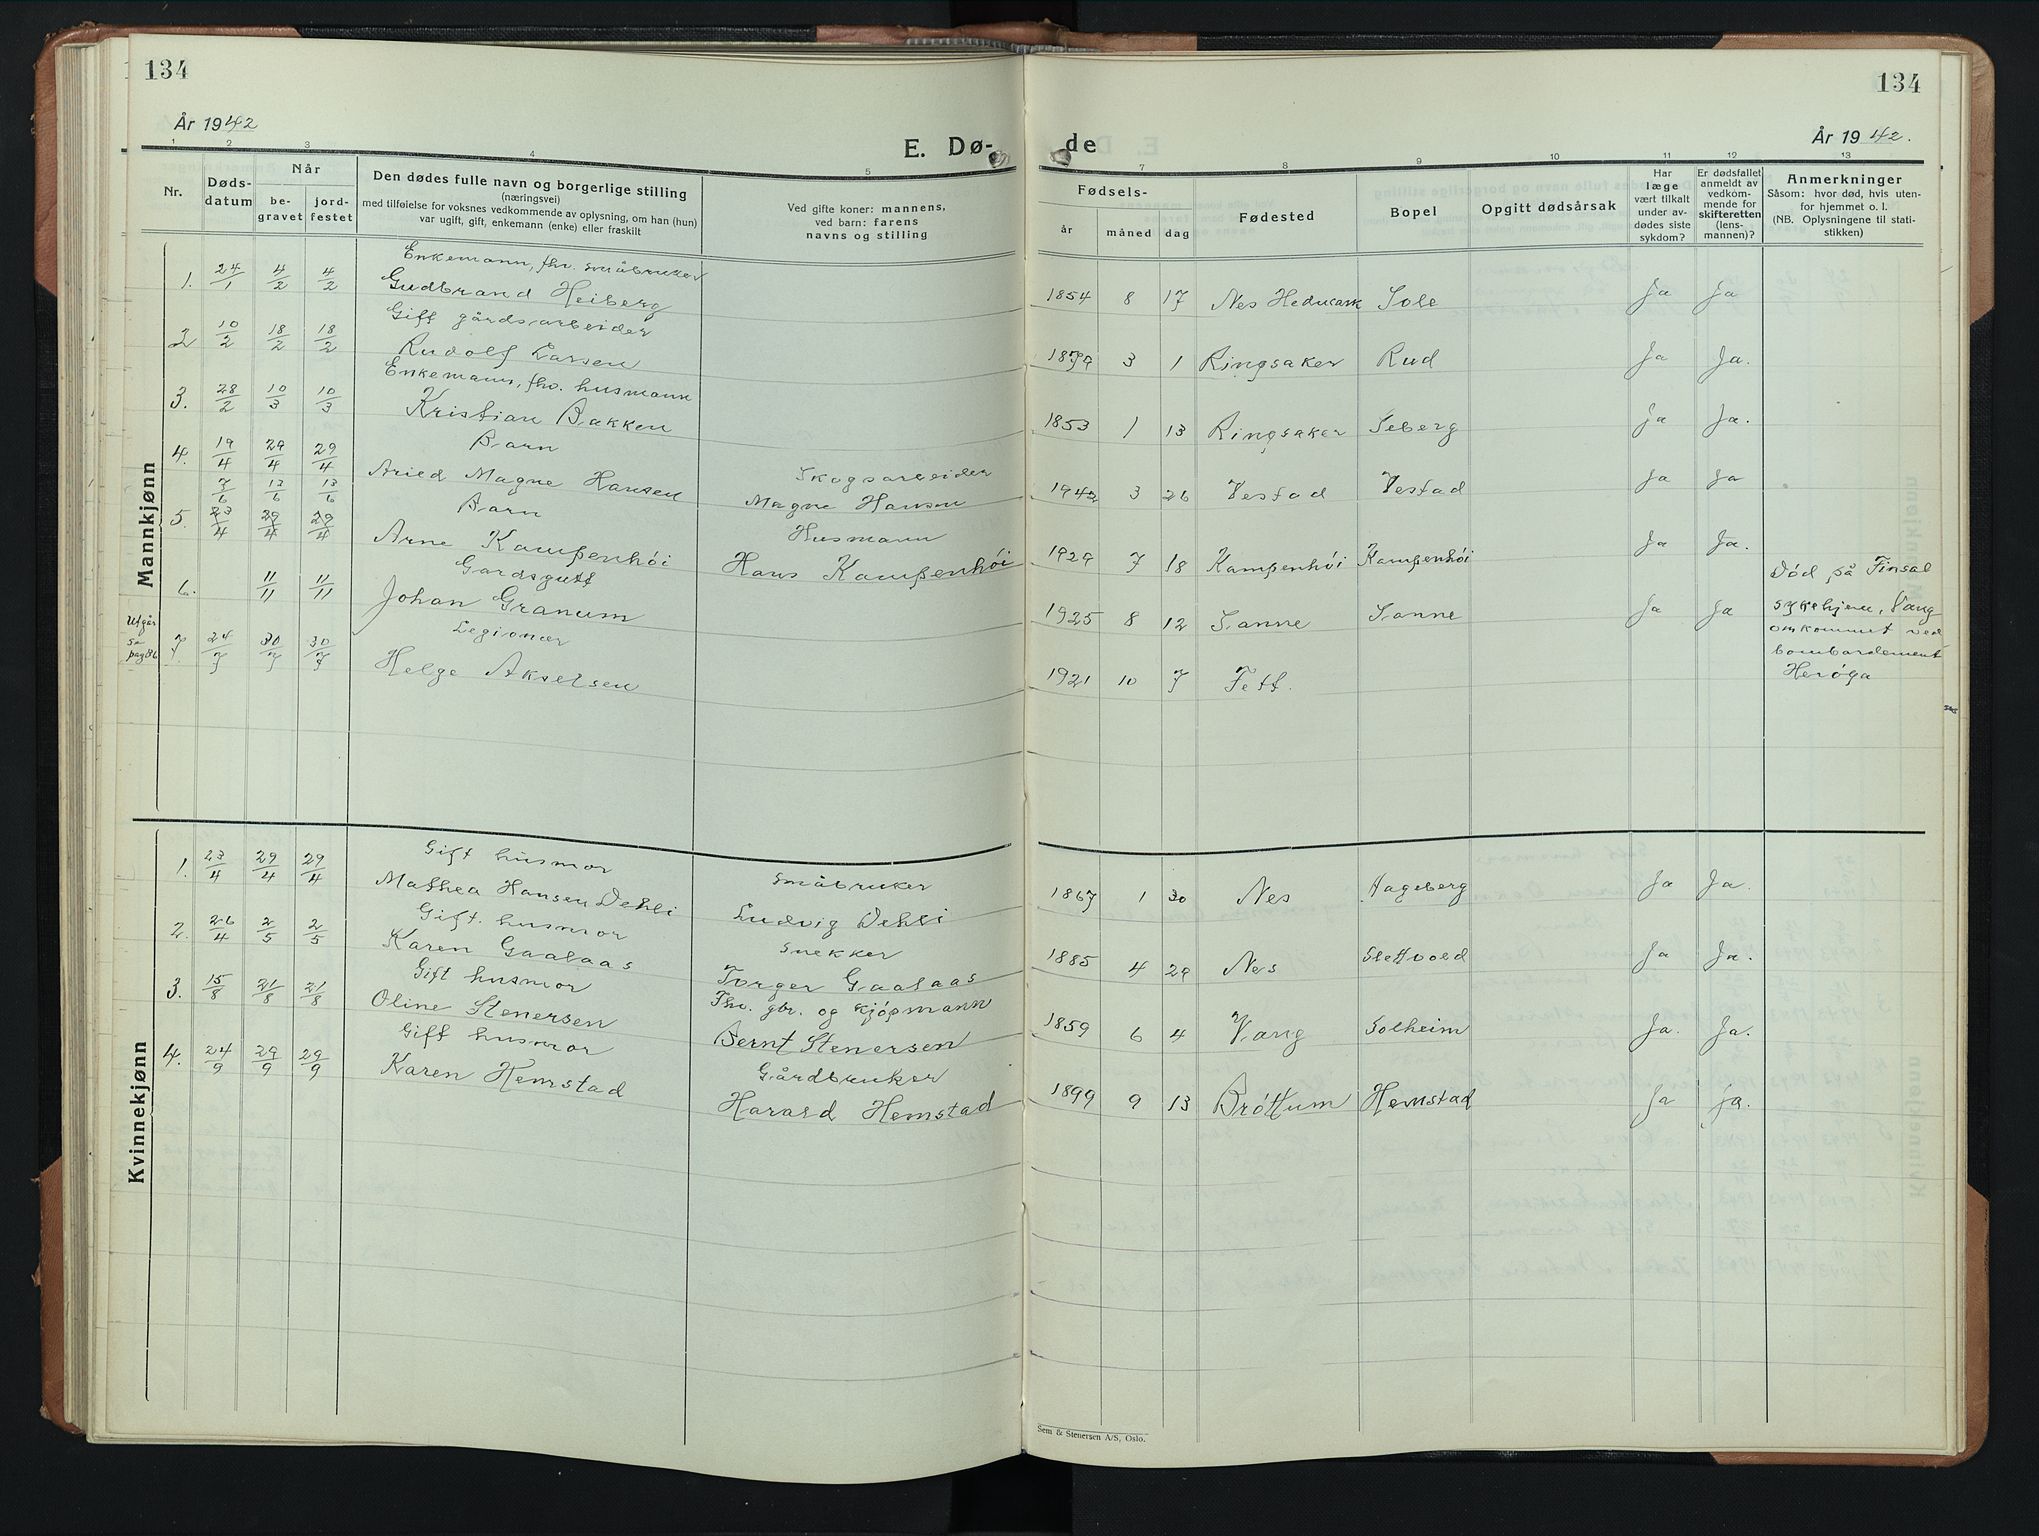 134
År 1942
E. Dø-
1 2 3 4 5
Nr.
Døds-
datum
Når
be-
gravet
jord-
festet
Den dødes fulle navn og borgerlige stilling
(næringsvei)
med tilføielse for voksnes vedkommende av oplysning, om han (hun)
var ugift, gift, enkemann (enke) eller fraskilt
Ved gifte koner: mannens,
ved barn: farens
navns og stilling
Mannkjønn
Enkemann, fhv. småbruker
1. 24/1 4/2 4/2 Gudbrand Heiberg
Gift gårdsarbeider
2 10/2 18/2 18/2 Rudolf Larsen
Enkemann, fhv. husmann
3. 28/2 10/3 10/3 Kristian Bakken
Barn
4. 19/4 29/4 29/4 Skogsarbeider
Aried Magne Hansen Magne Hansen
7/6 13/6 13/6 Barn
5. 23/4 29/4 29/4 Husmann
Arne Kampenhöi Hans Kampenhöi
Gardsgutt
6. 11/11 11/11 Johan Granum
Utgår
se
pag 86
Legionær
7 24/7 30/7 30/7 Helge Akselsen
Kvinnekjønn
Gift husmor
1. 23/4 29/4 29/4 Småbruker
Mathea Hansen Dehli Ludvig Dehli
Gift. husmor
2. 26/4 2/5 2/5 Snekker
Karen Gaalaas Torger Gaalaas
Gift husmor
3. 15/8 21/8 21/8 Fhv. gbr. og kjöpmann
Oline Stenersen Bernt Stenersen
Gift husmor
4. 24/9 29/9 29/9 Gårdbruker
Karen Hemstad Harald Hemstad
134
de
År 1942.
7 8 9 10 11 12 13
Fødsels-
år måned dag
Fødested
Bopel
Opgitt dødsårsak
Har
læge
vært tilkalt
under av-
dødes siste
sykdom?
Er dødsfallet
anmeldt av
vedkom-
mende for
skifteretten
(lens-
mannen)?
Anmerkninger
Såsom: hvor død, hvis uten-
for hjemmet o. l.
(NB. Oplysningene til stati-
stikken)
1854 8 17 Nes Hedmark Sole Ja Ja
1879 3 1 Ringsaker Rud Ja Ja.
1853 1 13 Ringsaker Seberg Ja Ja.
1942 3 26 Vestad Vestad Ja Ja
1929 7 18 Kampenhöi Kampenhöi Ja Ja.
Död på Finsal
sykehjem, Vang
1925 8 12 Sanne Sanne Ja Ja
omkommet ved
bombardement
Heröya
1921 10 7 Fett.
1867 1 30 Nes Hageberg Ja Ja.
1885 4 29 Nes Slettvold Ja Ja.
1859 6 4 Vang Solheim Ja. Ja.
1899 9 13 Bröttum Hemstad Ja ja.
Sem & Stenersen A/S, Oslo.